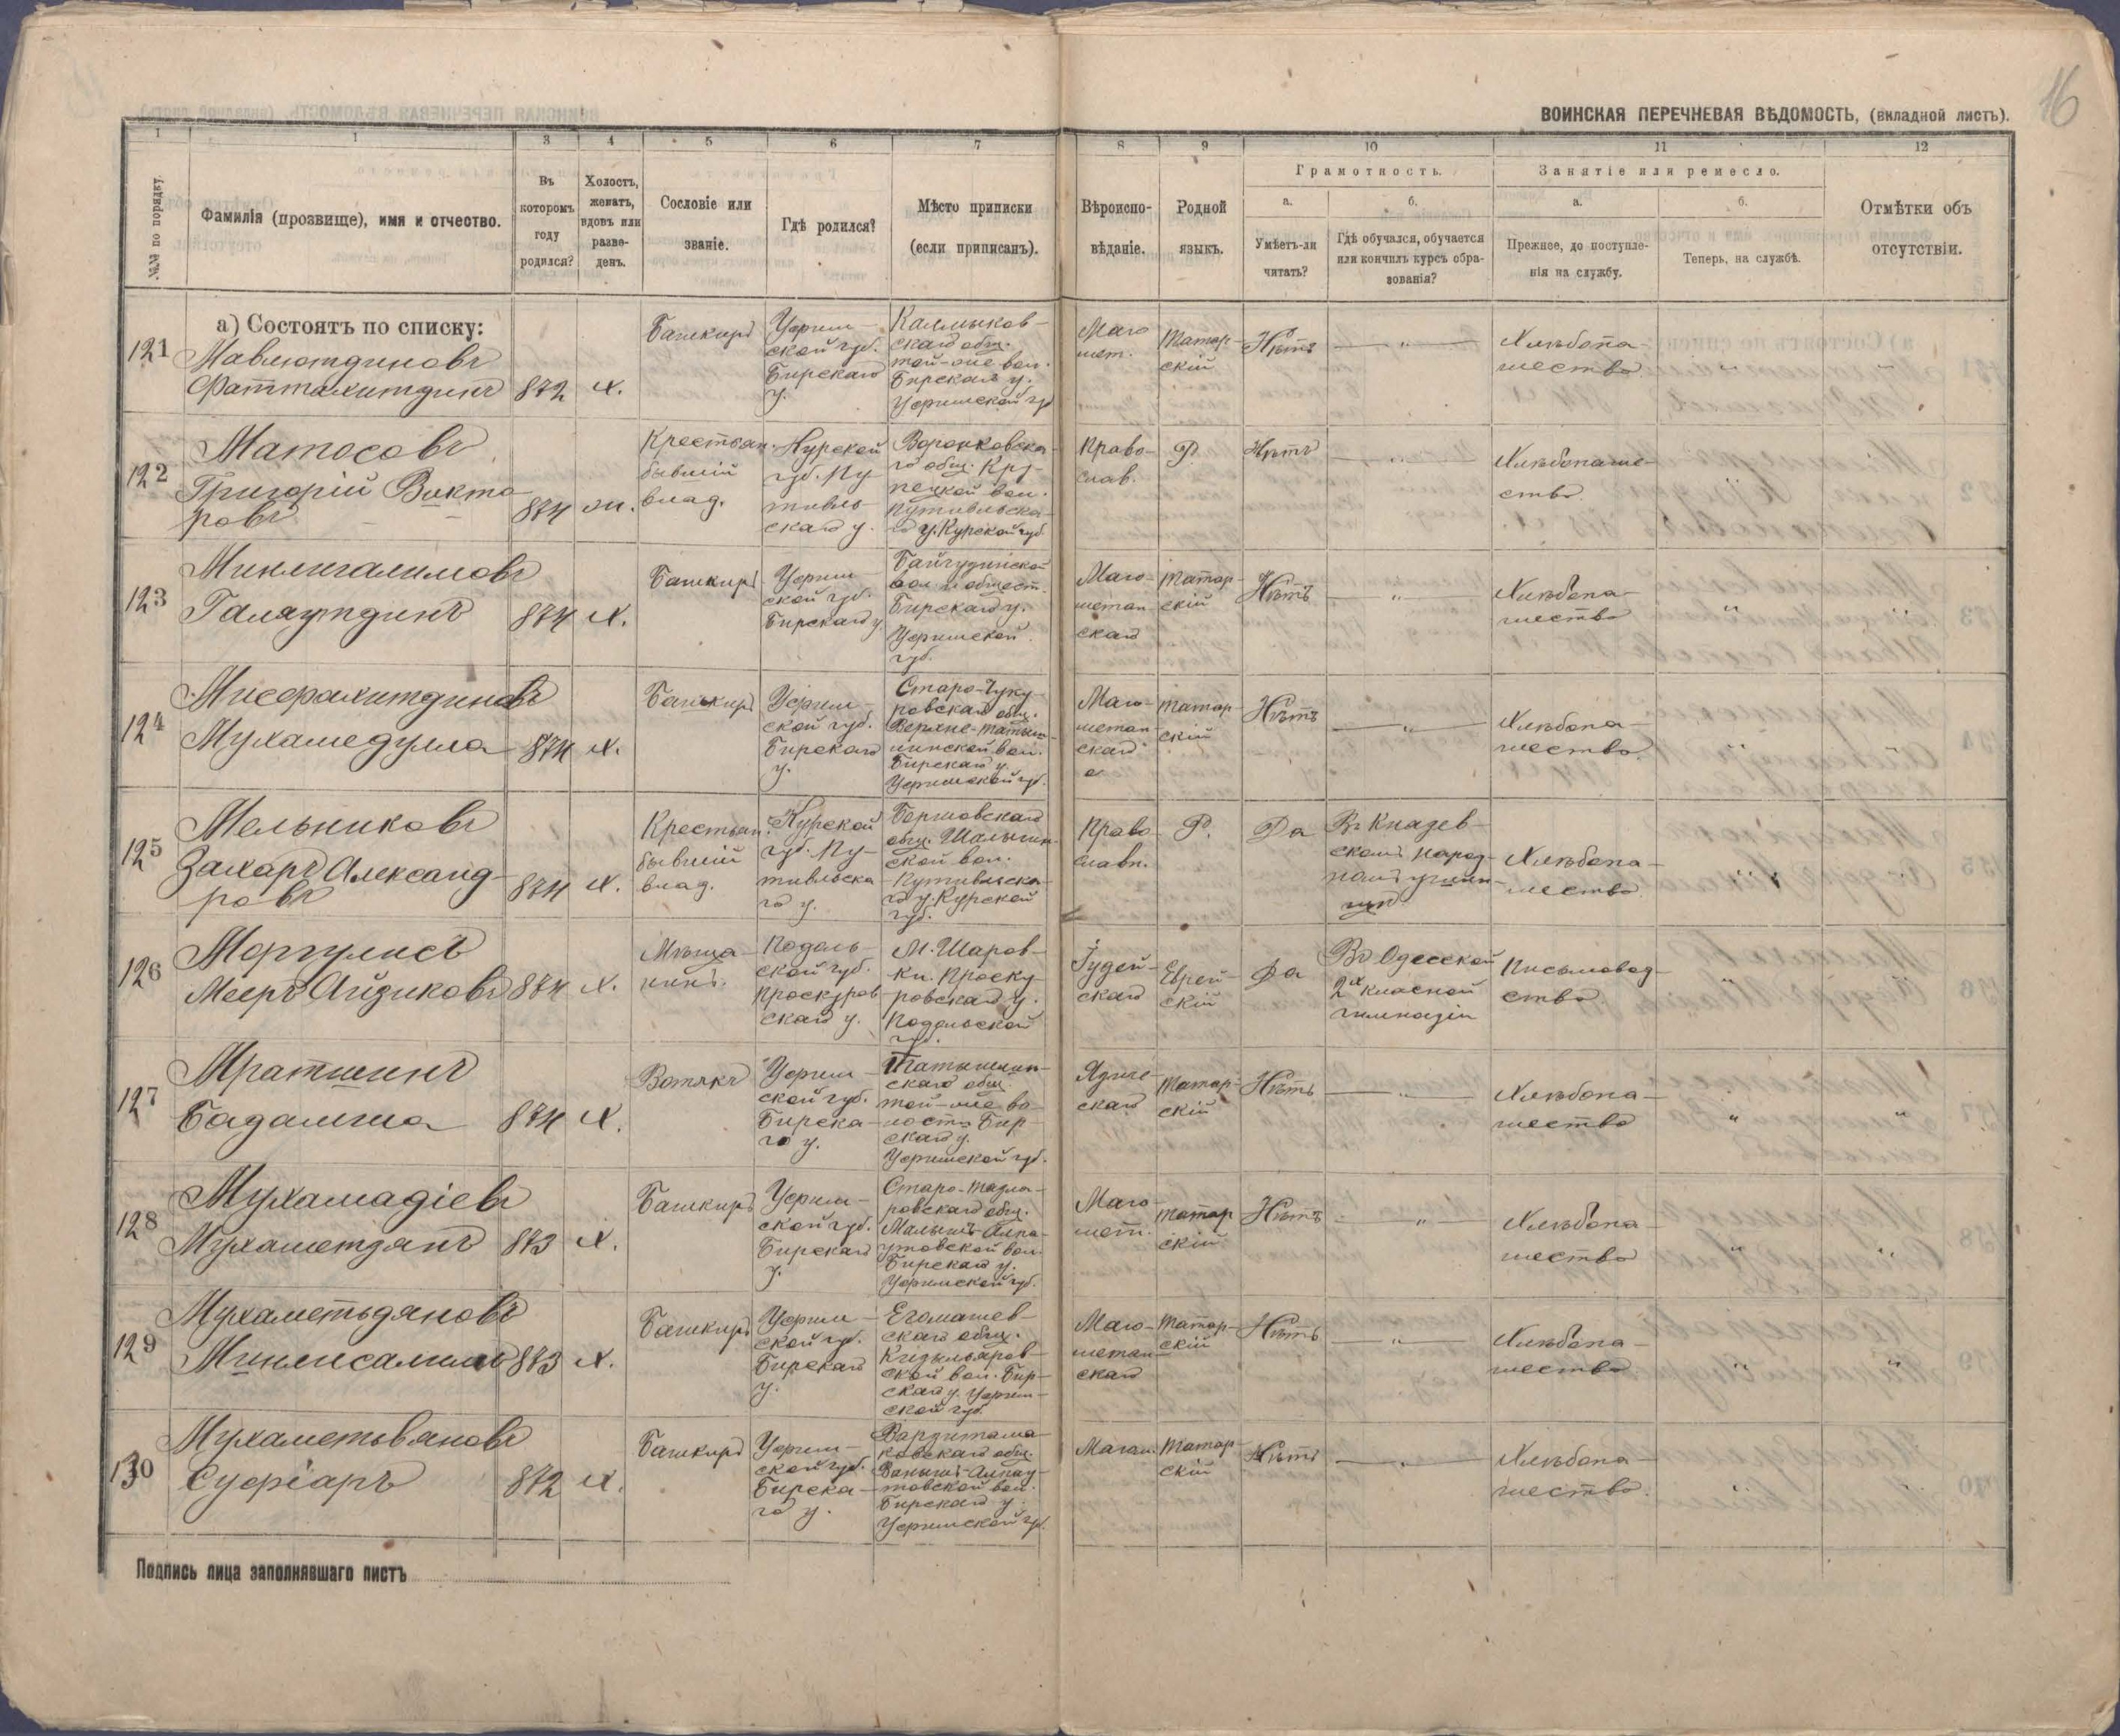 16
ВОИНСКАЯ ПЕРЕЧНЕВАЯ ВѢДОМОСТЬ, (вкладной листъ).
1 1 3 4 5 6 7 8 9 10 11 12
№№ по порядку.
Фамилія (прозвище), имя и отчество.
Въ
которомъ
году
родился?
Холостъ,
женатъ,
вдовъ или
разве-
денъ.
Сословіе или
званіе.
Гдѣ родился?
Мѣсто приписки
(если приписанъ).
Вѣроиспо-
вѣданіе.
Родной
языкъ.
Грамотность.
а.
Умѣетъ-ли
читать?
б.
Гдѣ обучался, обучается
или кончилъ курсъ обра-
зованія?
Занятіе или ремесло.
а.
Прежнее, до поступле-
нія на службу.
б.
Теперь, на службѣ.
Отмѣтки объ
отсутствіи.
а) Состоятъ по списку:
121
Мавлютдиновъ
Фаттахитдинъ
872
х.
Башкиръ
Уфим-
ской губ.
Бирскаго
у.
Калмыков-
скаго общ.
той-же вол.
Бирскаго у.
Уфимской губ
Маго
мет.
Татар-
скій
Нѣтъ
— „ —
Хлѣбопа-
шество
„
122
Матосовъ
Григорій Викто
ровъ
874
ж.
Крестьян.
бывшій
влад.
Курской
губ. Пу-
тивль-
скаго у.
Воронковска-
го общ. Кру-
пецкой вол.
Путивльска-
го у. Курской губ
Право-
слав.
Р.
Нѣтъ
— „ —
Хлѣбопаше-
ство
123
Минлигалимовъ
Галяутдинъ
874
х.
Башкиръ
Уфим-
ской губ.
Бирскаго у
вол. и общест.
Бирскаго у.
Уфимской
губ.
Маго-
метан
скаго
Татар-
скій
Нѣтъ
— „ —
Хлѣбопа-
шество
„
124
Мухамедулла
874
х.
Башкиръ
Уфим-
ской губ.
Бирскаго
у.
Старо-Чуку-
ровскаго общ.
нинской вол.
Бирскаго у.
Уфимской губ.
Маго-
метан
скаго
Татар-
скій
Нѣтъ
— „ —
Хлѣбопа-
шество
„
125
Мельниковъ
Захаръ Александ-
ровъ
874
х.
Крестьян.
бывшій
влад.
Курской
губ. Пу-
тивльска
го у.
общ. Шалыгин-
ской вол.
Путивльска-
го у. Курской
губ.
Право
славн.
Р.
Да
скомъ народ-
номъ учили-
щѣ
Хлѣбопа-
шество
„
126
Моргулисъ
Мееръ Айзиковъ
874
х.
Мѣща-
нинъ.
Подоль-
ской губ.
Проскуров-
скаго у.
М. Шаров-
ки. Проску-
ровскаго у.
Подольской
губ.
Іудей-
скаго
Еврей-
скій
Да
Въ Одесской
2х класной
гимназіи
Письмовод-
ство.
„
127
Мратшинъ
Бадамша
874
х.
Вотякъ
Уфим-
ской губ.
Бирска-
го у.
Татышлин-
скаго общ.
той-же во-
лость Бир-
скаго у.
Уфимской губ.
скаго
Татар-
скій
Нѣтъ
— „ —
Хлѣбопа-
шество
„
„
128
Мухамадіевъ
Мухаметдянъ
873
х.
Башкиръ
Уфим-
ской губ.
Бирскаго
у.
ровскаго общ.
утовской вол.
Бирскаго у.
Уфимской губ.
Маго-
мет.
Татар
скій
Нѣтъ
— „ —
Хлѣбопа-
шество
„
129
Мухаметьдяновъ
873
х.
Башкиръ
Уфим-
ской губ.
Бирскаго
у.
скаго общ.
Кизыльяров-
ской вол. Бир-
скаго у. Уфим-
ской губ.
Маго-
метан-
скаго
Татар-
скій
Нѣтъ
— „ —
Хлѣбопа-
шество
„
„
130
Суфіаръ
872
х.
Башкиръ
Уфим-
ской губ.
Бирска-
го у.
ковскаго общ.
товской вол.
Бирскаго у.
Уфимской губ.
Магом.
Татар-
скій
Нѣтъ
— „ —
Хлѣбопа-
шество.
Подпись лица заполнявшаго листъ